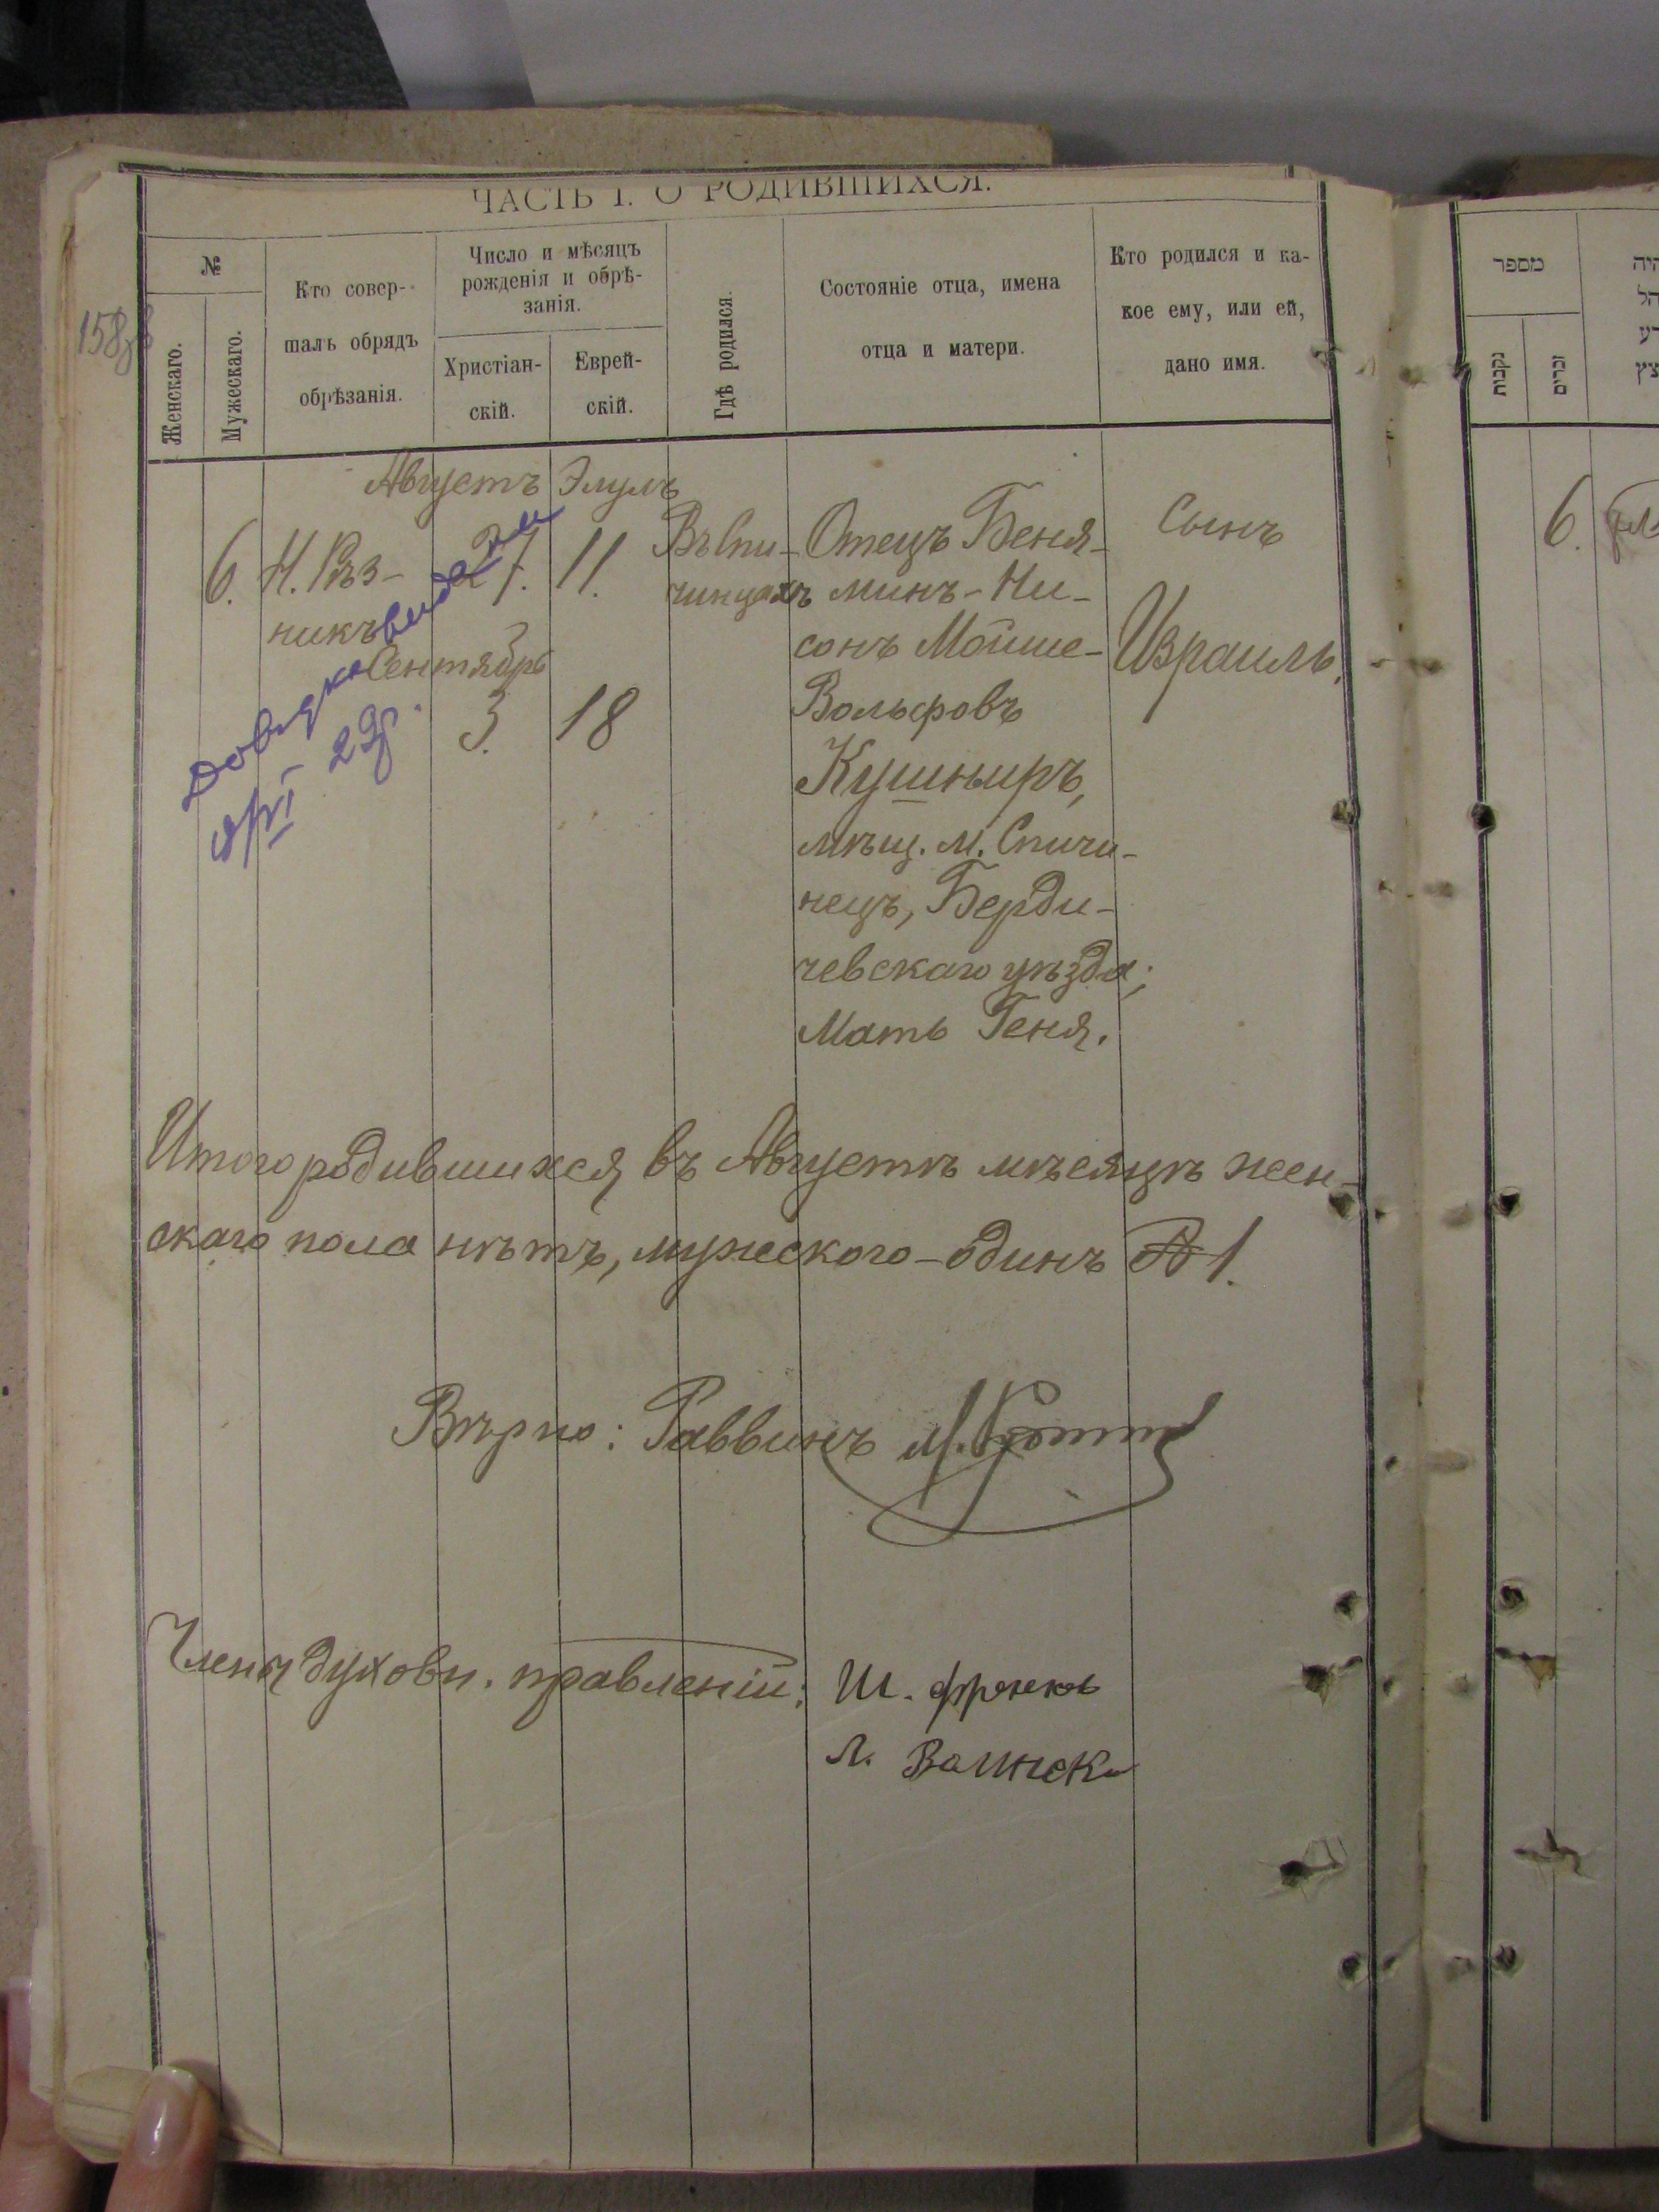 ЧАСТЬ I. О РОДИВШИХСЯ.
№
Женскаго.
Мужескаго.
Кто совер-
шалъ обрядъ
обрѣзанія.
Число и мѣсяцъ
рожденія и обрѣ-
занія.
Христіан-
скій.
Еврей-
скій.
Гдѣ родился.
Состояніе отца, имена
отца и матери.
Кто родился и ка-
кое ему, или ей,
дано имя.
158
Августъ Элулъ
6.
Н. Рѣз-
никъ
27.
11.
Сентябрь
3.
18
Въ Спи-
чинцахъ
Отецъ Беня-
минъ-Ни-
сонъ Мойше-
Вольфовъ
Кушниръ,
мѣщ. м. Спичи-
нецъ, Берди-
чевскаго уѣзда;
Мать Геня.
Сынъ
Израиль.
Довідку видали
VI 29р.
Итого родившихся въ Августѣ мѣсяцѣ жен-
скаго пола нѣтъ, мужескаго-одинъ 1.
Вѣрно: Раввинъ М.
Члены духовн. правленій: Ш. Френкель
Л.
מספר
נקבות
זכרים
6.